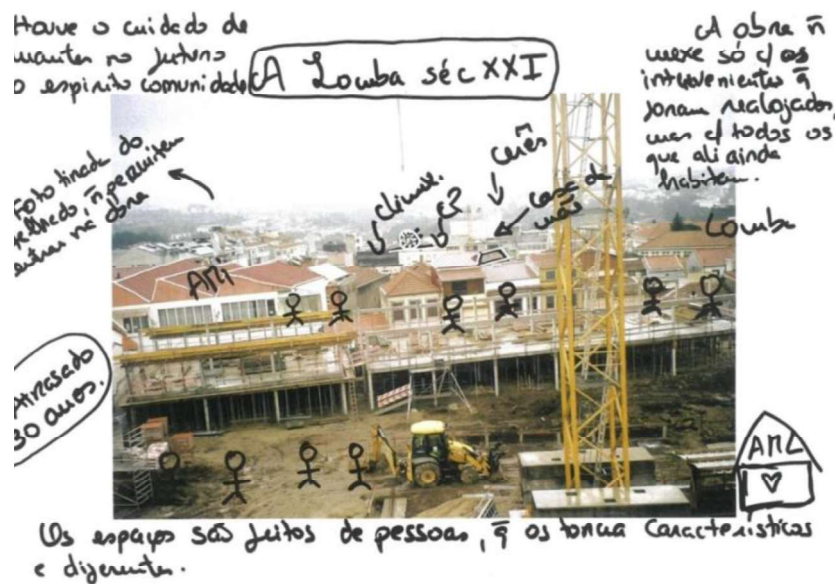 Houve o cuidado de
manter no futuro
o espirito comunidade
A Lomba séc XXI
A obra n̄
mexe só c/ os
intervenientes q̄
foram realojados,
mas c/ todos os
que ali ainda
habitam.
Foto tirada do
telhado, n̄ permitem
entrar na obra
climix.
cê?
cavês
casa da
mãe
Lomba
AMi
Atrasado
30 anos.
AML
Os espaços são feitos de pessoas, q̄ os torna característicos
e diferentes.